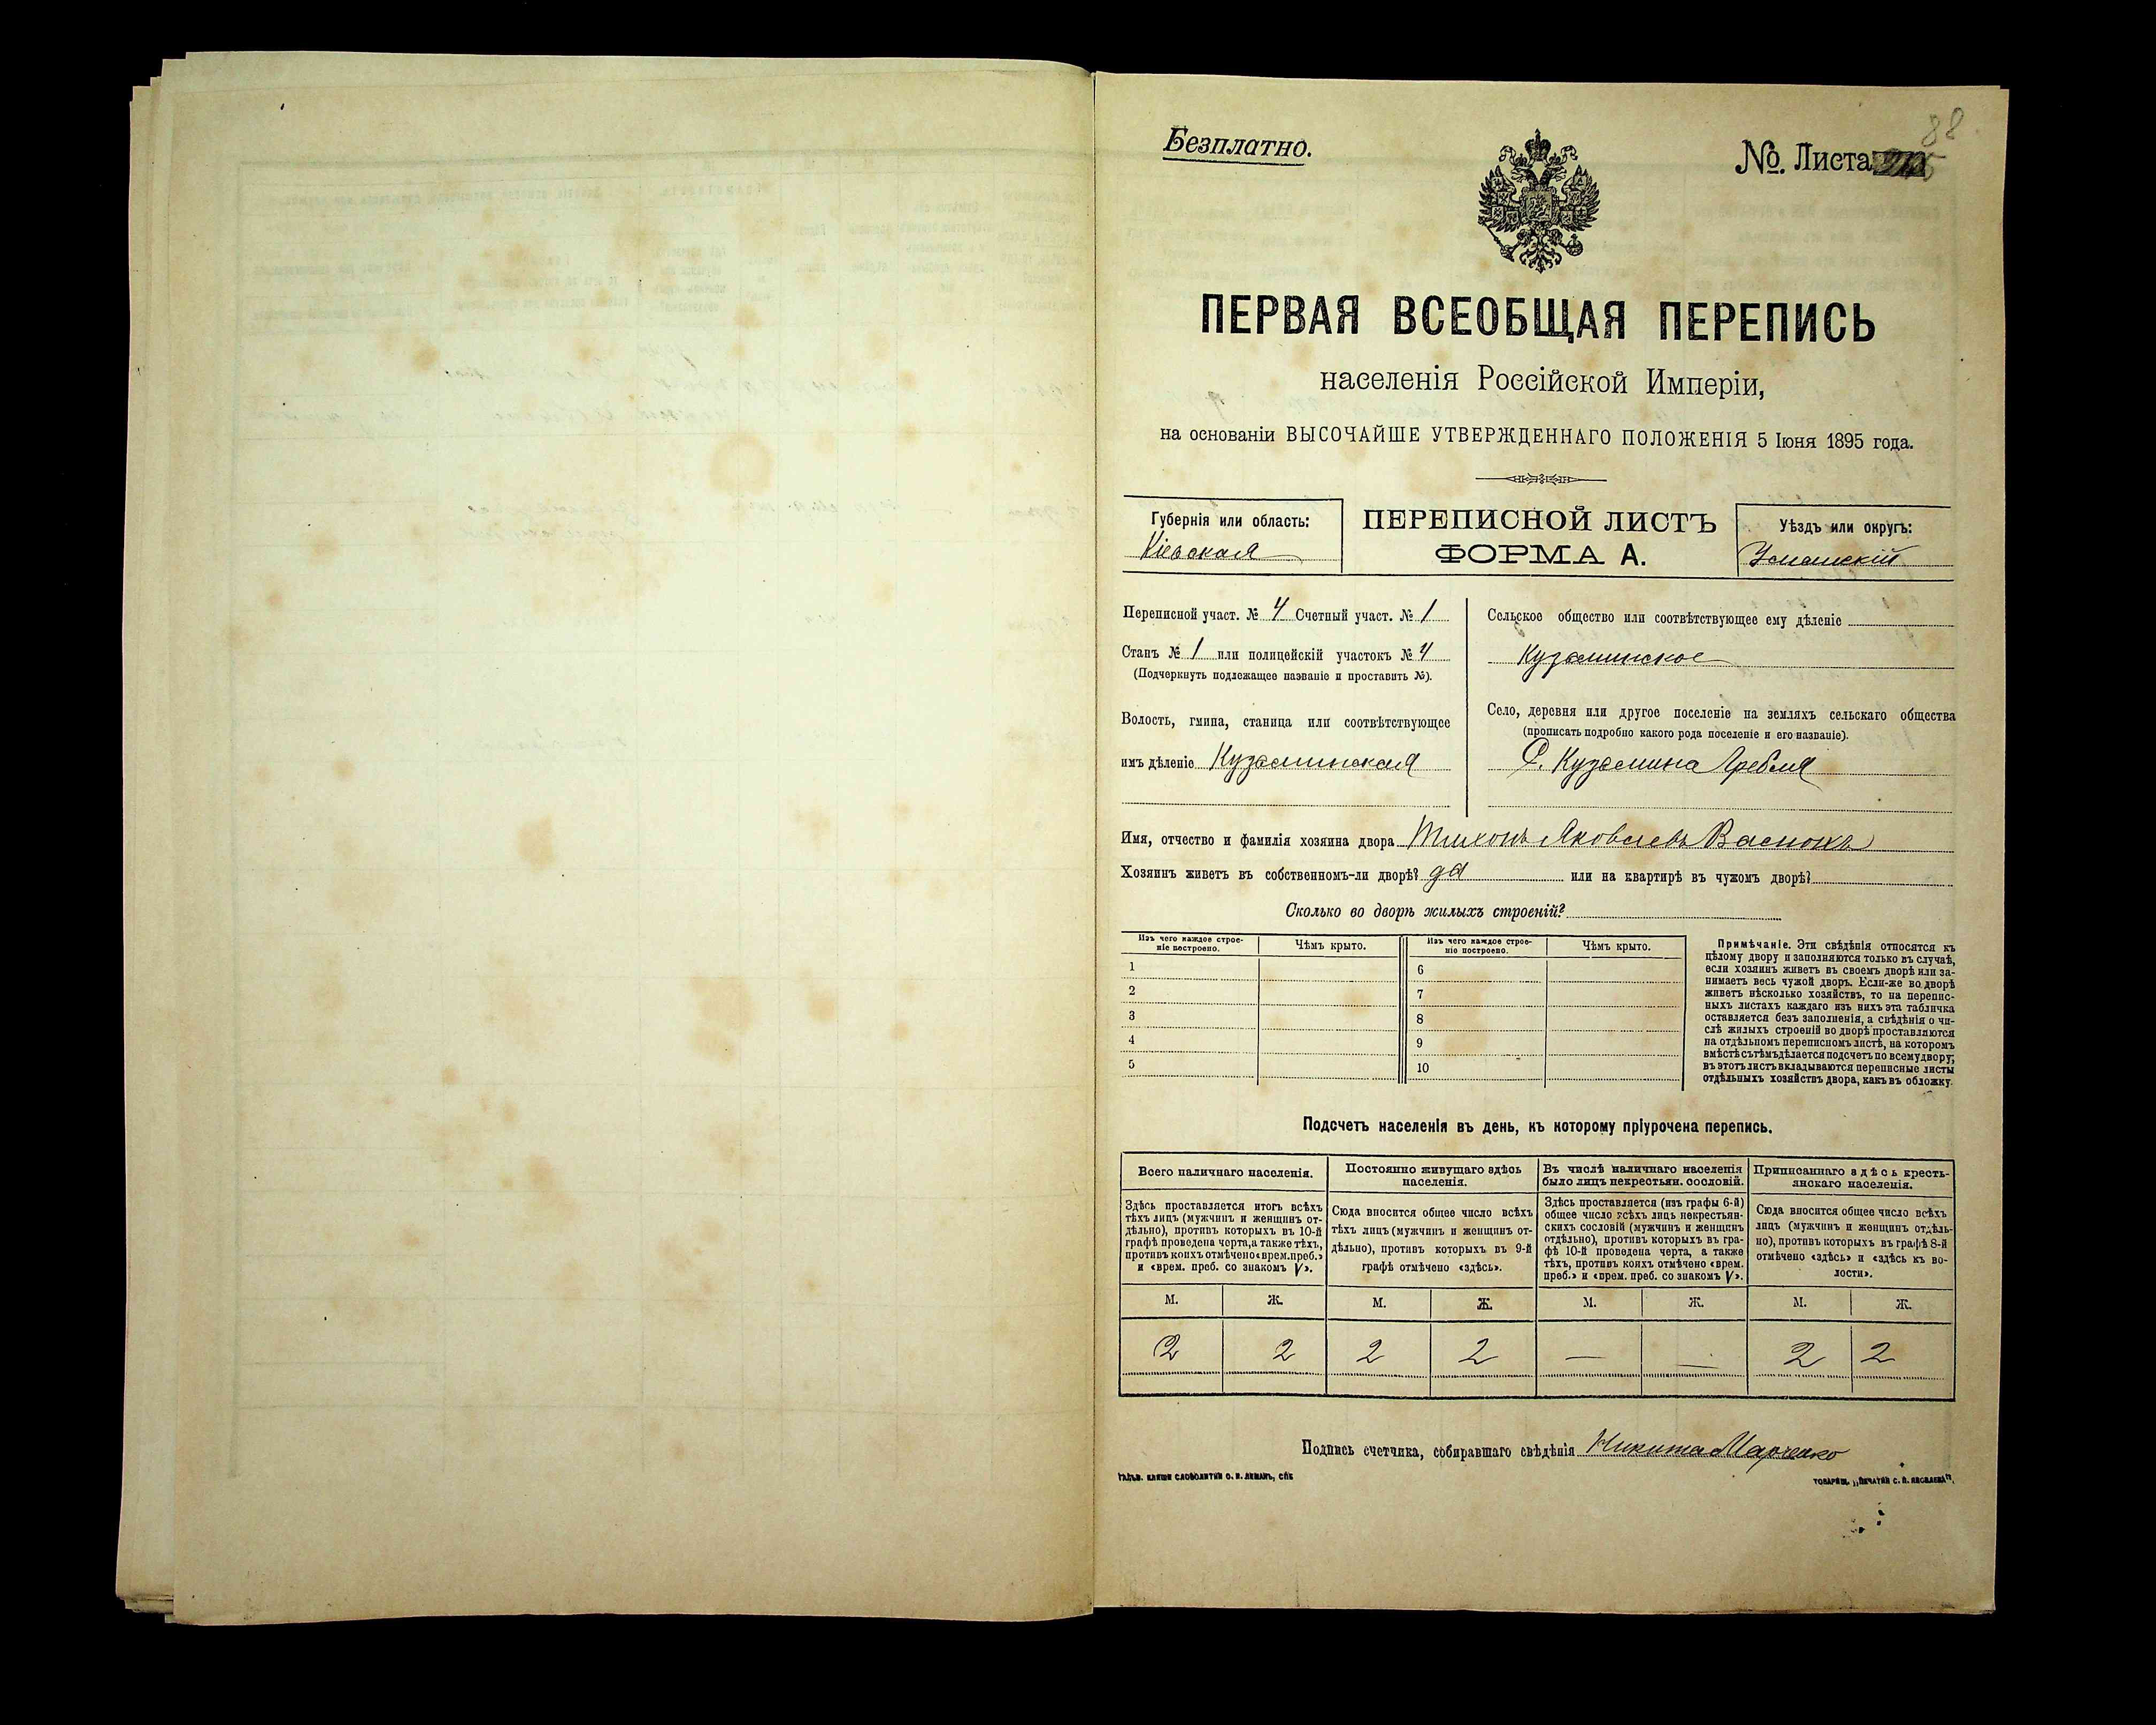 88
Безплатно.
№. Листа
ПЕРВАЯ ВСЕОБЩАЯ ПЕРЕПИСЬ
населенія Россійской Имперіи,
на основаніи ВЫСОЧАЙШЕ УТВЕРЖДЕННАГО ПОЛОЖЕНІЯ 5 Іюня 1895 года.
Губернія или область:
Кіевская
ПЕРЕПИСНОЙ ЛИСТЪ
ФОРМА А.
Уѣздъ или округъ:
Уманскій
Переписной участ. № 4 Счетный участ. № 1
Станъ № 1 или полицейскій участокъ № 4
(Подчеркнуть подлежащее названіе и проставить №).
Волость, гмина, станица или соотвѣтствующее
имъ дѣленіе Кузьминская
Сельское общество или соотвѣтствующее ему дѣленіе
Кузьминское
Село, деревня или другое поселеніе на земляхъ сельскаго общества
(прописать подробно какого рода поселеніе и его названіе).
С. Кузьмина Гребля
Имя, отчество и фамилія хозяина двора Тихонъ Яковлевъ
Хозяинъ живетъ въ собственномъ-ли дворѣ? да или на квартирѣ въ чужомъ дворѣ?
Сколько во дворѣ жилыхъ строеній?
Изъ чего каждое строе-
ніе построено.
Чѣмъ крыто.
1
2
3
4
5
Изъ чего каждое строе-
ніе построено.
Чѣмъ крыто.
6
7
8
9
10
Примѣчаніе. Эти свѣдѣнія относятся къ
цѣлому двору и заполняются только въ случаѣ,
если хозяинъ живетъ въ своемъ дворѣ или за-
нимаетъ весь чужой дворъ. Если-же во дворѣ
живетъ нѣсколько хозяйствъ, то на перепис-
ныхъ листахъ каждаго изъ нихъ эта табличка
оставляется безъ заполненія, а свѣдѣнія о чи-
слѣ жилыхъ строеній во дворѣ проставляются
на отдѣльномъ переписномъ листѣ, на которомъ
вмѣстѣ съ тѣмъ дѣлается подсчетъ по всему двору;
въ этотъ листъ вкладываются переписные листы
отдѣльныхъ хозяйствъ двора, какъ въ обложку.
Подсчетъ населенія въ день, къ которому пріурочена перепись.
Всего наличнаго населенія.
Здѣсь проставляется итогъ всѣхъ
тѣхъ лицъ (мужчинъ и женщинъ от-
дѣльно), противъ которыхъ въ 10-й
графѣ проведена черта, а также тѣхъ,
противъ коихъ отмѣчено «врем. преб.»
и «врем. преб. со знакомъ V».
Постоянно живущаго здѣсь
населенія.
Сюда вносится общее число всѣхъ
тѣхъ лицъ (мужчинъ и женщинъ от-
дѣльно), противъ которыхъ въ 9-й
графѣ отмѣчено «здѣсь».
Въ числѣ наличнаго населенія
было лицъ некрестьян. сословій.
Здѣсь проставляется (изъ графы 6-й)
общее число всѣхъ лицъ некрестьян-
скихъ сословій (мужчинъ и женщинъ
отдѣльно), противъ которыхъ въ гра-
фѣ 10-й проведена черта, а также
тѣхъ, противъ коихъ отмѣчено «врем.
преб.» и «врем. преб. со знакомъ V».
Приписаннаго здѣсь кресть-
янскаго населенія.
Сюда вносится общее число всѣхъ
лицъ (мужчинъ и женщинъ отдѣль-
но), противъ которыхъ въ графѣ 8-й
отмѣчено «здѣсь» и «здѣсь къ во-
лости».
М. Ж. М. Ж. М. Ж. М. Ж.
2 2 2 2 — — 2 2
Подпись счетчика, собиравшаго свѣдѣнія Никита Марченко
КЛИШЕ СЛОВОЛИТНИ О. И. ЛЕМАНЪ, СПБ
ТОВАРИЩ. „ПЕЧАТНИ С. П. ЯКОВЛЕВА“.